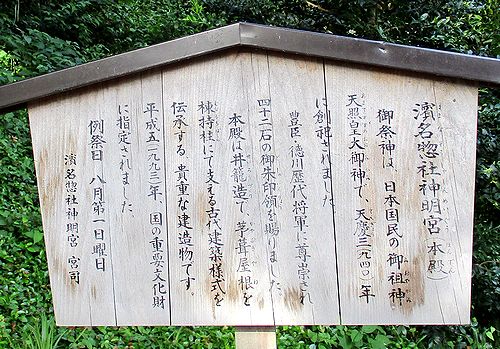 濱名惣社神明宮(本殿)
御祭神は、日本国民の御祖神
天照皇大御神で、天慶三(九四〇)年
に創祀されました
豊臣、徳川歴代将軍に尊崇され
四十二石の御朱印領を賜りました
本殿は井籠造で、茅葺屋根を
棟持柱にて支える古代建築様式を
伝承する貴重な建造物です。
平成五(一九九三)年、国の重要文化財
に指定されました
例祭日 八月第一日曜日
濱名惣社神明宮 宮司